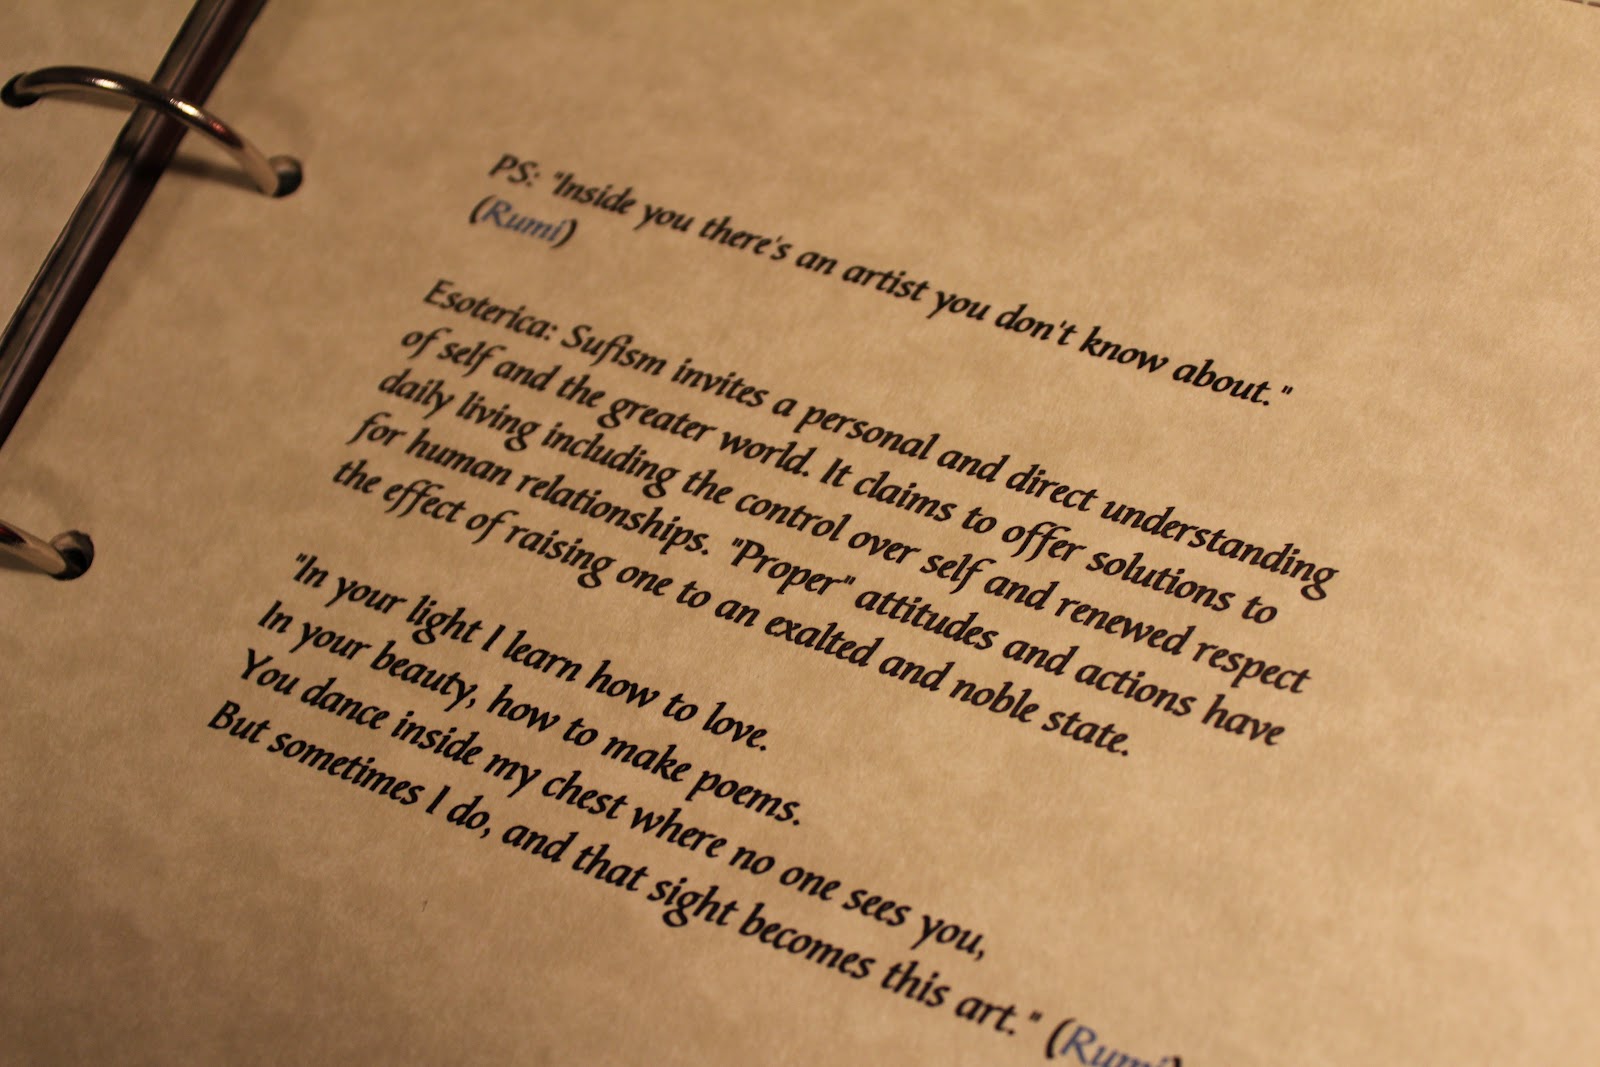 PS: "Inside you there's an artist you don't know about."
(Rumi)
Esoterica: Sufism invites a personal and direct understanding
of self and the greater world. It claims to offer solutions to
daily living including the control over self and renewed respect
for human relationships. "Proper" attitudes and actions have
the effect of raising one to an exalted and noble state.
"In your light I learn how to love.
In your beauty, how to make poems.
You dance inside my chest where no one sees you,
But sometimes I do, and that sight becomes this art." (Rumi)